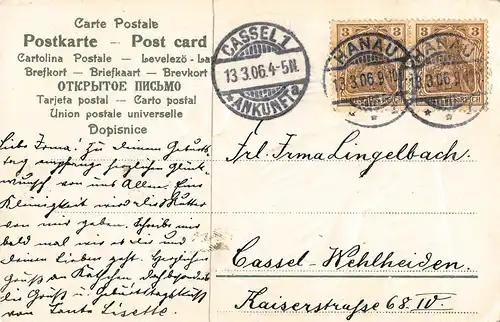 Carte Postale
Postkarte – Post card
Cartolina Postale – Levelező-la
Brefkort – Briefkaart – Brevkort
ОТКРЫТОЕ ПИСЬМО
Tarjeta postal – Carto postal
Union postale universelle
Dopisnice
CASSEL 1
13.3.06.4-5N.
ANKUNFT
3 3 3 3
HANAU
13.3.06.9
HANAU
13.3.06.9
Liebe Irma! Zu deinem Geburts
tag empfang herzlichen Glück
wunsch von uns Allen. Eine
Kleinigkeit wird dir Mutter
von mir geben. Schreibe mir
bald mal wie es dir und
deinen Lieben geht. Herzlichen
Gruß an Käthchen
die Grüß u. Geburtstagskuß
von Tante Lisette.
Frl. Irma Lingelbach.
Cassel-Wehlheiden.
Kaiserstraße 68 IV.